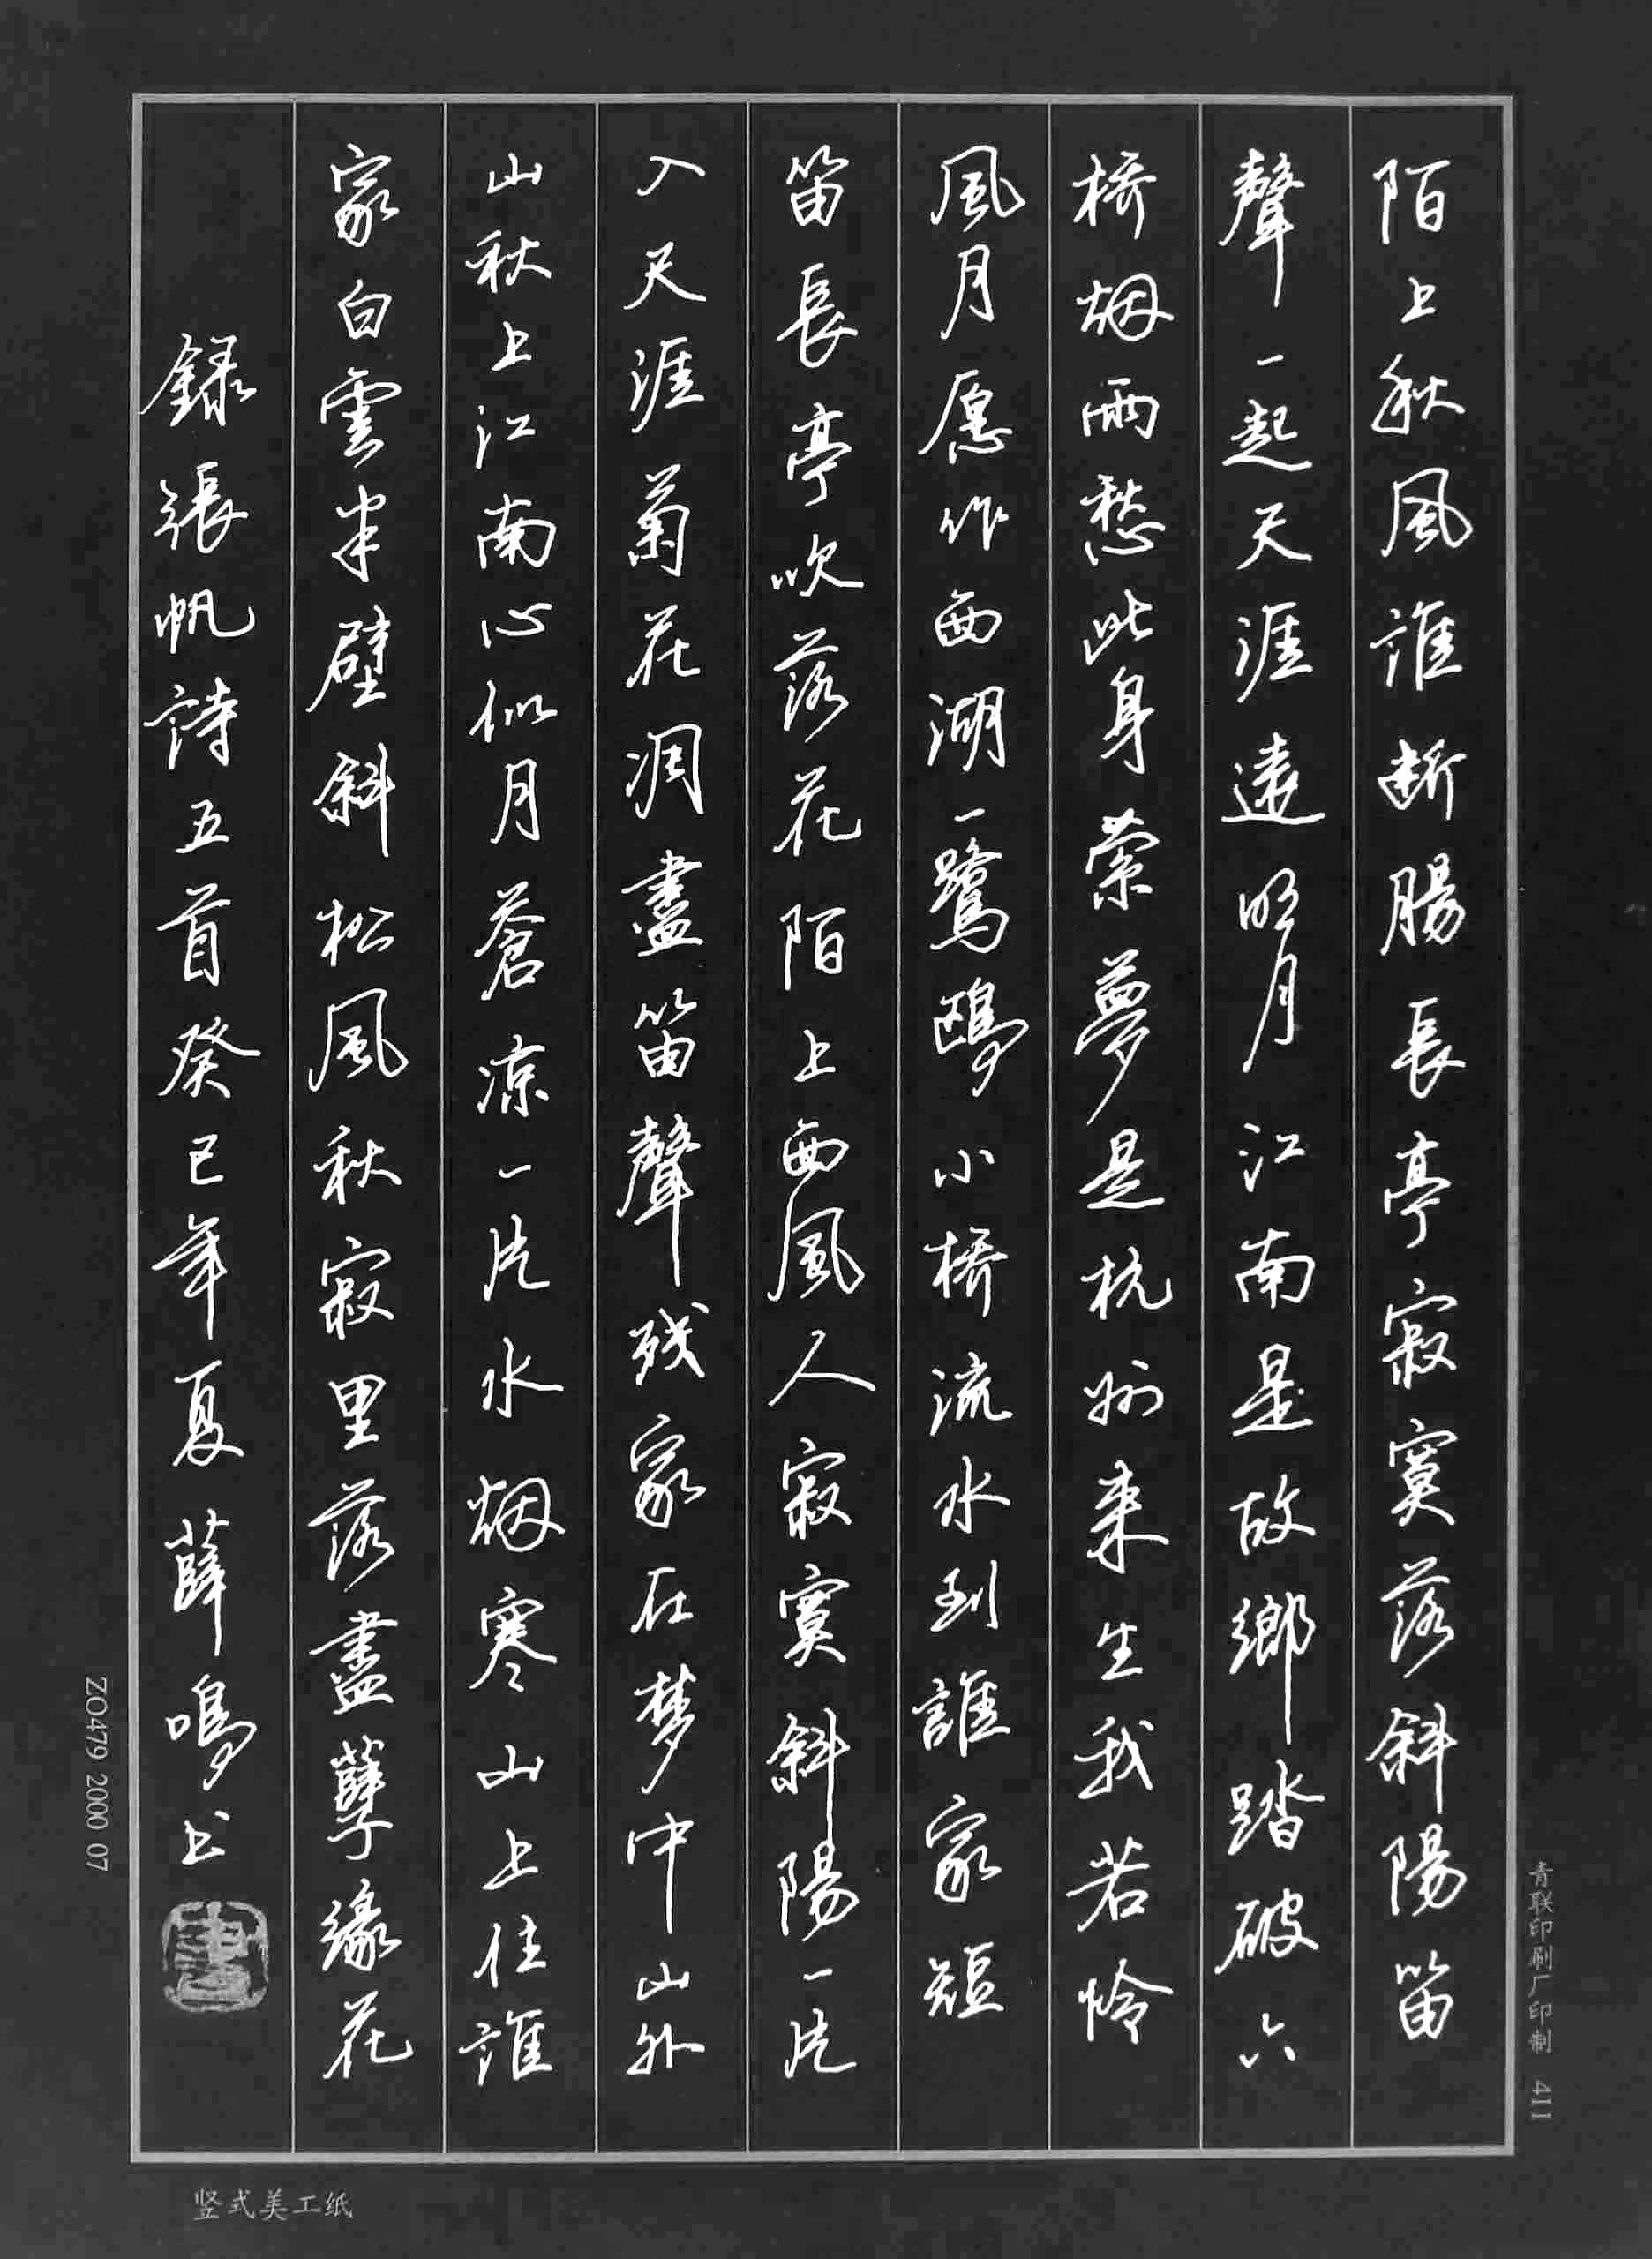 陌上秋風誰断腸長亭寂寞落斜陽笛
聲一起天涯遠明月江南是故鄉踏破六
橋烟雨愁此身縈夢是杭州来生我若怜
風月愿作西湖一鷺鷗小橋流水到誰家短
笛長亭吹落花陌上西風人寂寞斜陽一片
入天涯菊花凋盡笛聲残家在梦中山外
山秋上江南心似月蒼凉一片水烟寒山上住誰
家白雲半壁斜松風秋寂里落盡孽緣花
録張帆詩五首癸巳年夏薛鳴書
書
青联印刷厂印制 411
ZO479 2000 07
竖式美工纸